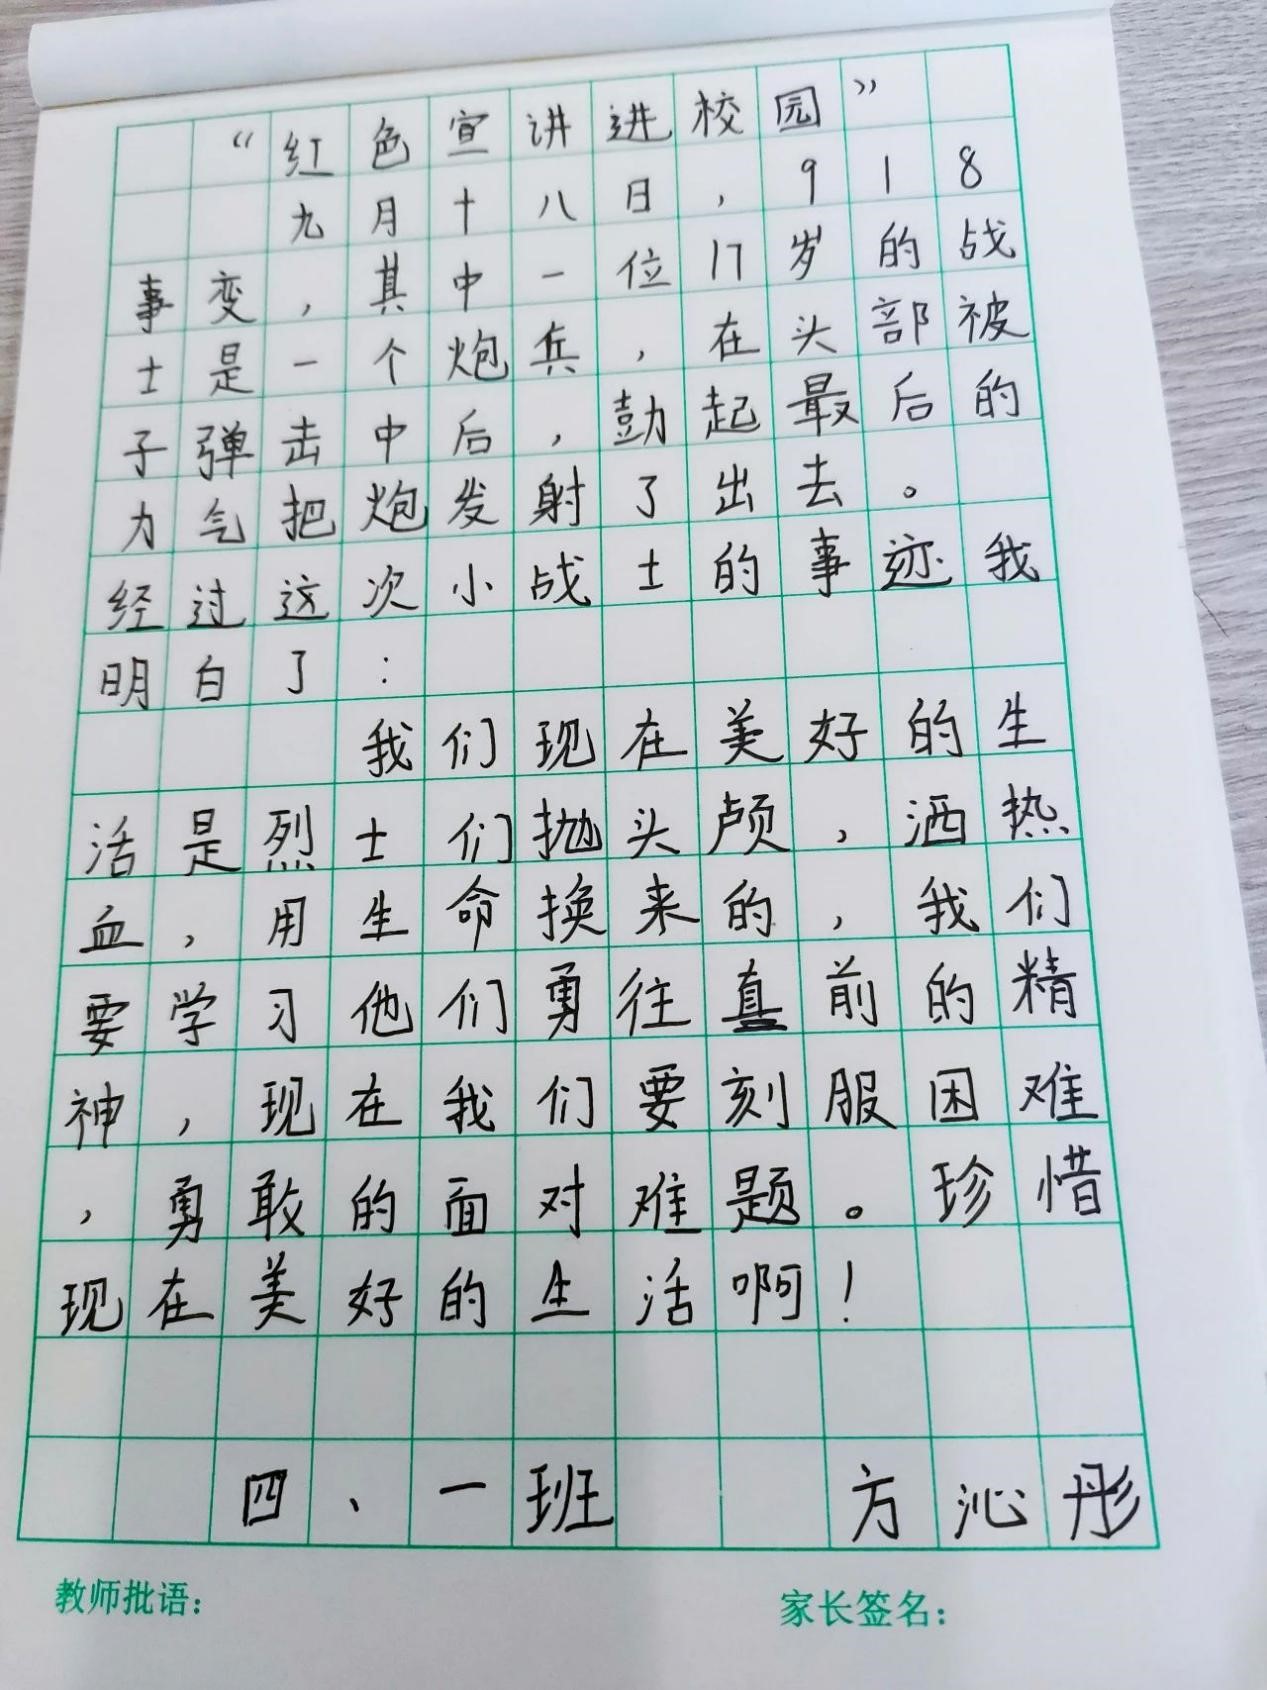 “红色宣讲进校园”
九月十八日，918
事变，其中一位17岁的战
士是一个炮兵，在头部被
子弹击中后，鼓起最后的
力气把炮发射了出去。
经过这次小战士的事迹我
明白了：
我们现在美好的生
活是烈士们抛头颅，洒热
血，用生命换来的，我们
要学习他们勇往直前的精
神，现在我们要刻服困难
，勇敢的面对难题。珍惜
现在美好的生活啊！
四、一班 方沁彤
教师批语： 家长签名：